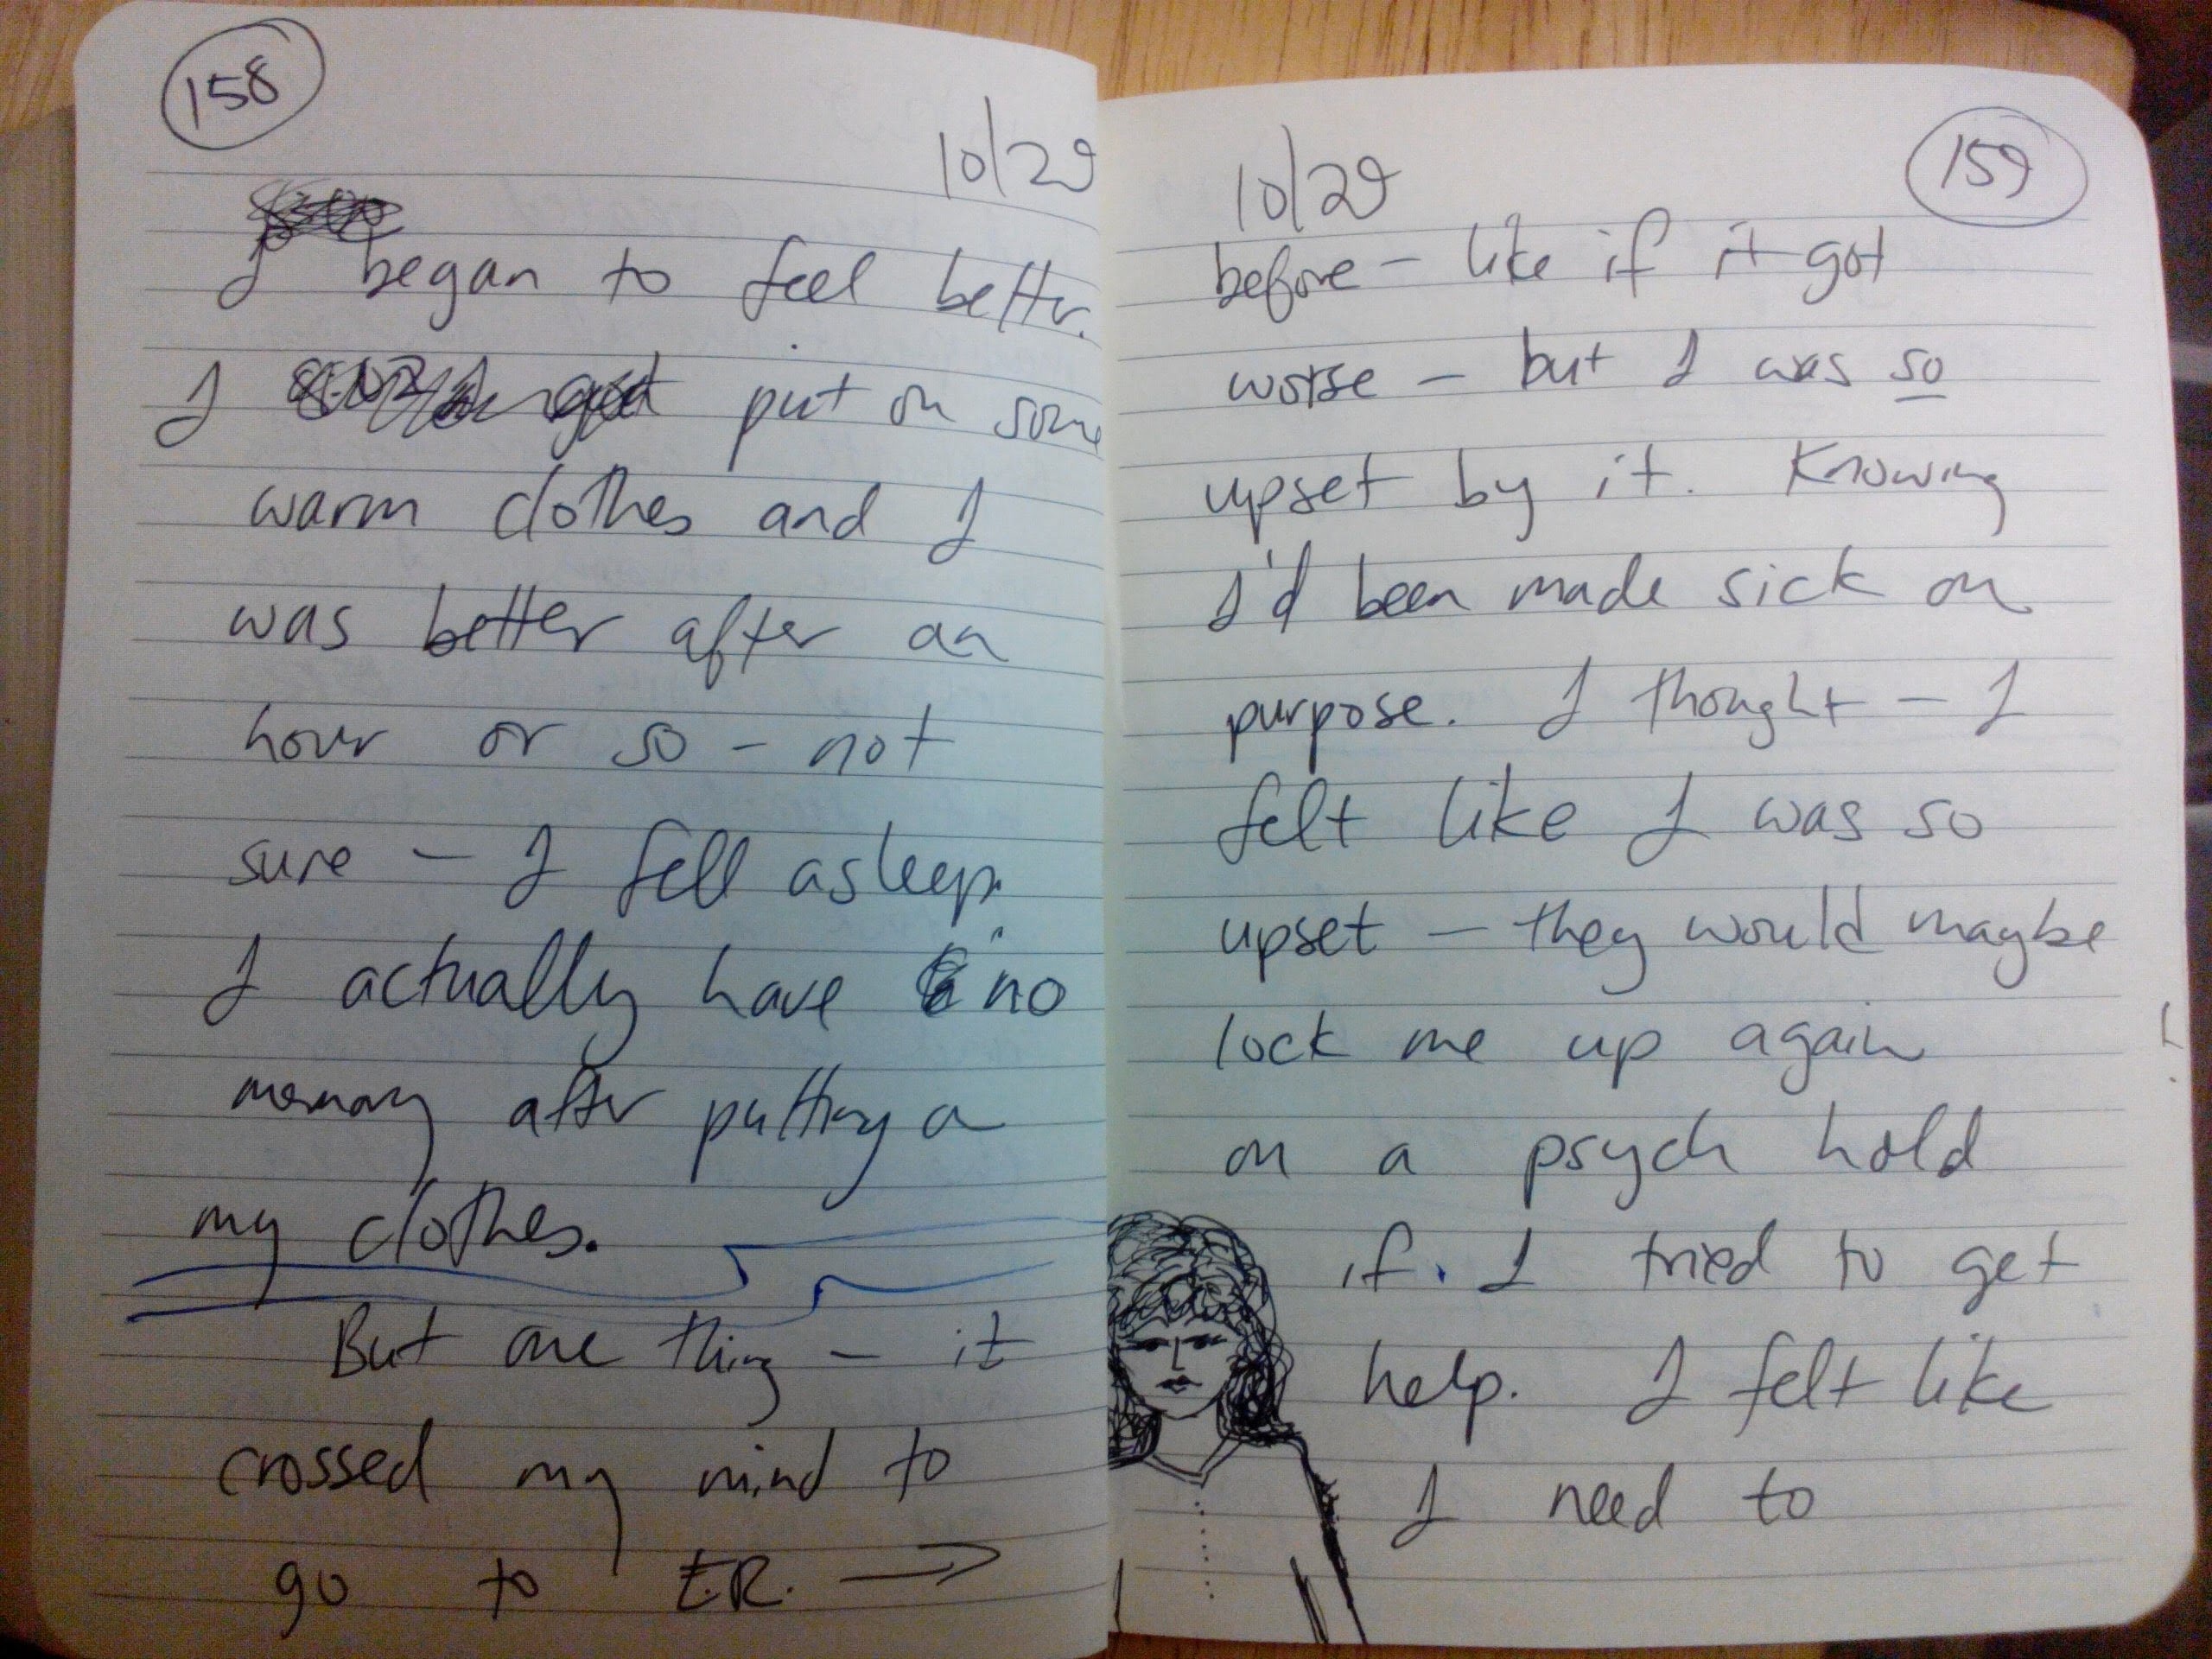 158
10/29
I began to feel better.
I put on some
warm clothes and I
was better after an
hour or so - not
sure - I fell asleep.
I actually have no
memory after putting a
my clothes.
But one thing - it
crossed my mind to
go to E.R. →
159
10/29
before - like if it got
worse - but I was so
upset by it. Knowing
I'd been made sick on
purpose. I thought - I
felt like I was so
upset - they would maybe
lock me up again
on a psych hold
if I tried to get
help. I felt like
I need to